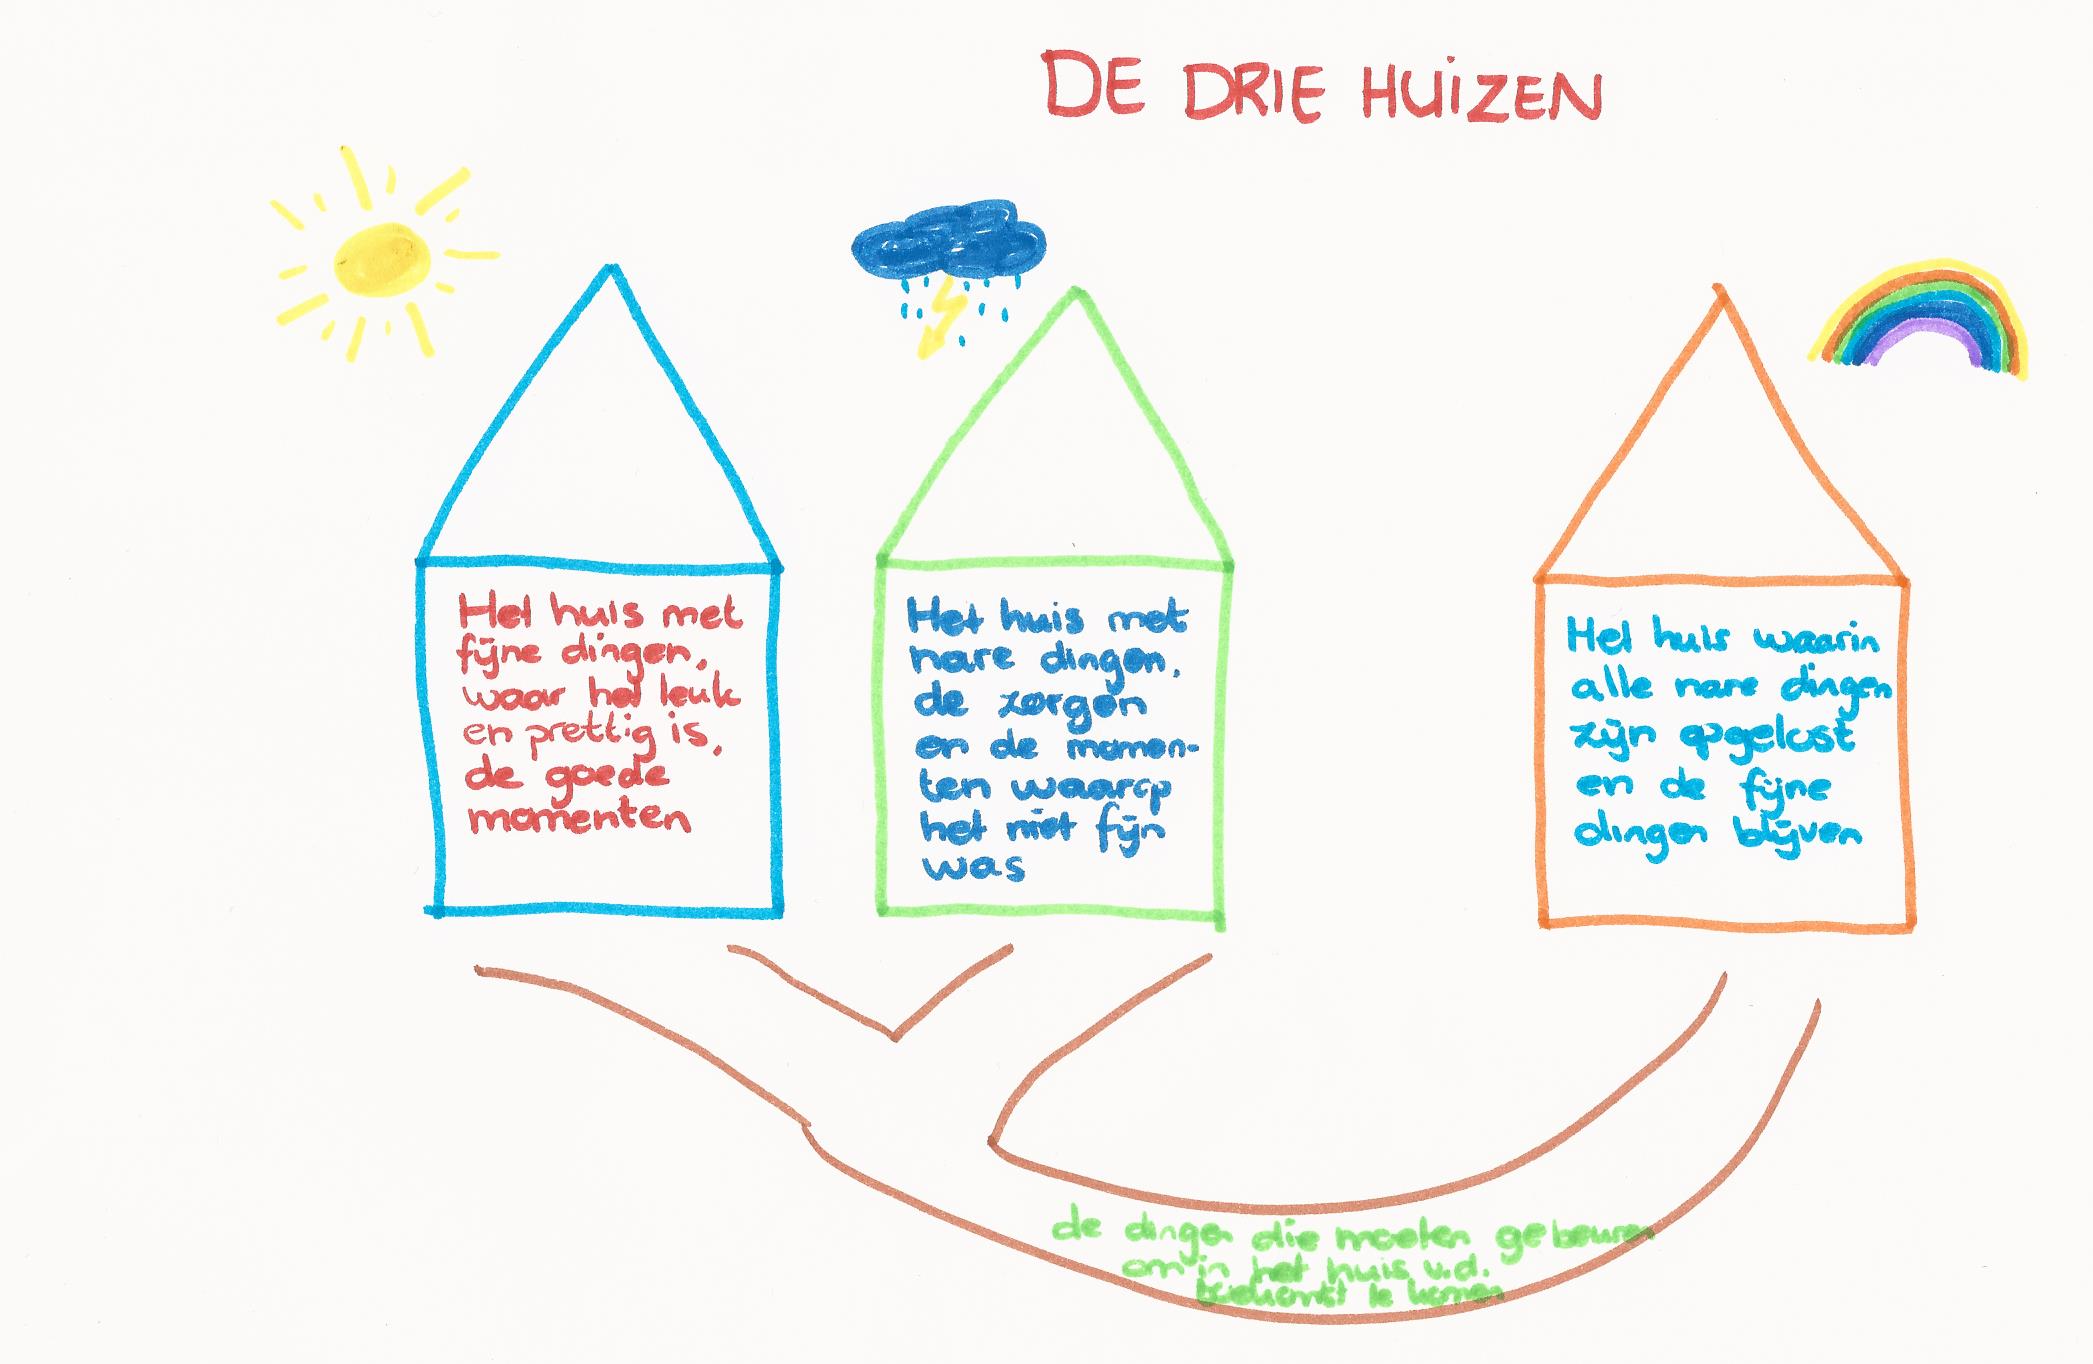 DE DRIE HUIZEN
Het huis met
fijne dingen,
waar het leuk
en prettig is,
de goede
momenten
Het huis met
nare dingen,
de zorgen
en de momen-
ten waarop
het niet fijn
was
Het huis waarin
alle nare dingen
zijn opgelost
en de fijne
dingen blijven
de dingen die moeten gebeuren
om in het huis v.d.
toekomst te komen